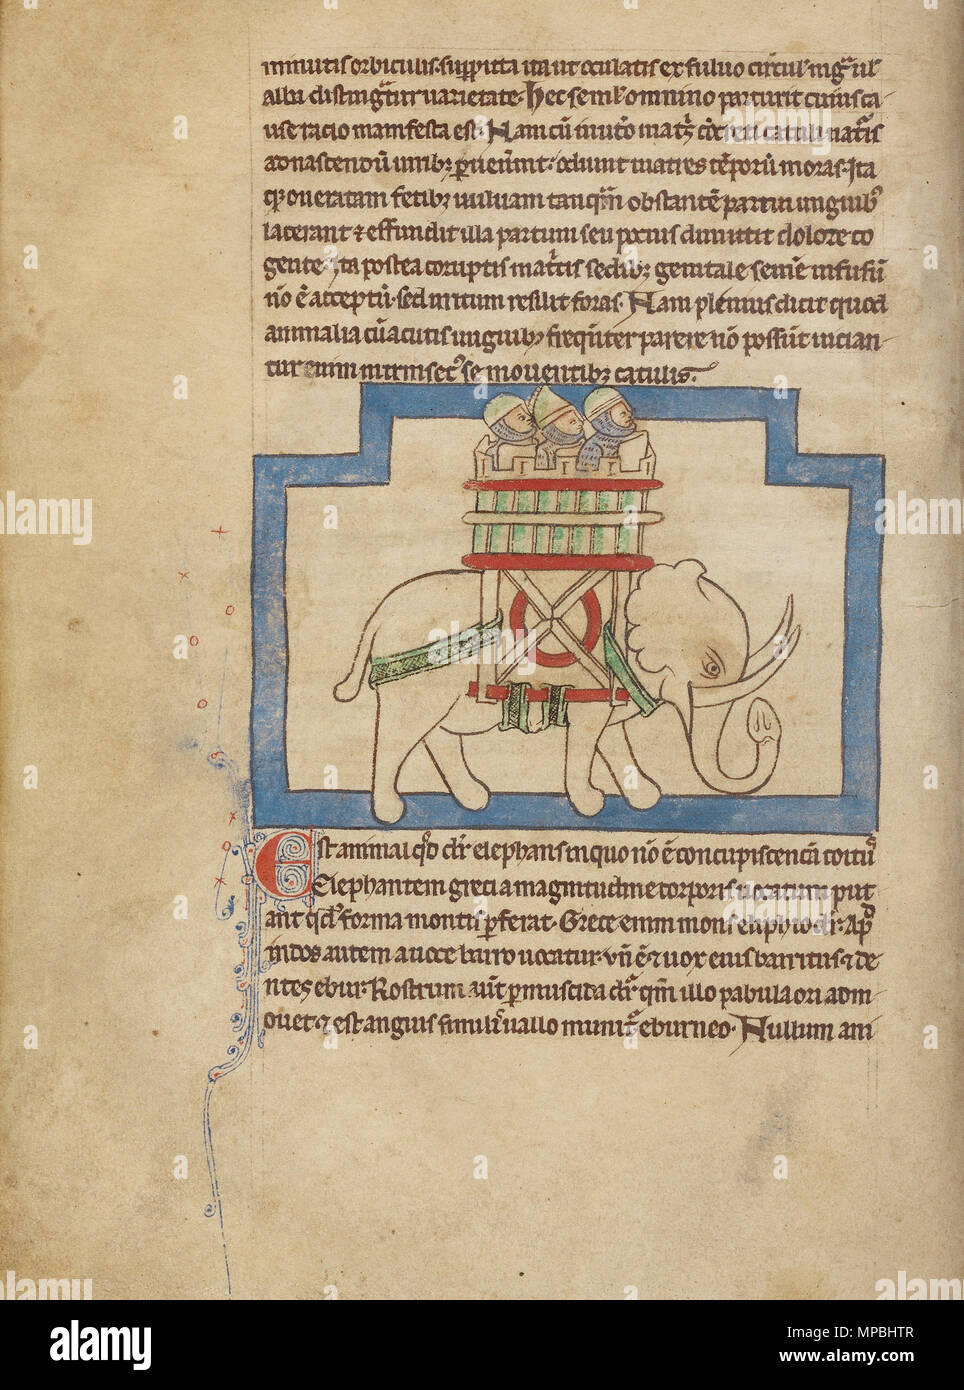 minutis orbiculis. supputa ita ut oculatis ex fuluo circul' nigra ul'
alba distingatur uarietate. Hec semł omnino parturit cuius ca
use racio manifesta est. Nam cū in utō matͥs cōcreti catuli matᷓis
ad nascendū uiribꝫ ꝑuen̄int. odiunt matres tēporū moras. Ita
qͥ oneratam fetibꝫ uuluam tanqͣm̄ obstantē partui unguibꝰ
lacerant ⁊ effundit illa partum seu pocius dimittit dolore co
gente. Ita postea coruptis matͥis sedibꝫ genitale semē infusū
nō ē acceptū. sed irritum resilit foras. Nam plenius dicit quod
animalia cū acutis unguibꝫ freqn̄ter parere nō possūt uician-
tur enim intrinsecꝰ se mouentibꝫ catulis.
Est animal qd̄ dr̄ elephans in quo nō ē concupiscencia coitꝰ
Elephantem greci a magnitudine corporis uocatum put
ant qd̓ forma montis p̄ferat. Grece enim mons eliphio dr̄. Apd̓
indos autem a uoce barro uocatur. un̄ ē ⁊ uox eius barritus ⁊ de
ntes ebur. Rostrum aūt pmuscida dr̄ qm̄ illo pabula ori adm-
ouet ⁊ est angui similis uallo munitᷓ eburneo. Nullum ani
alamy
Image ID: MPBHTR
www.alamy.com